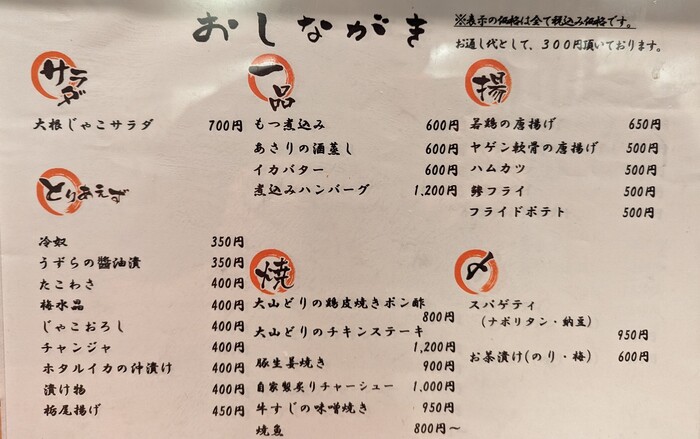 おしながき
※表示の価格は全て税込み価格です。
お通し代として、300円頂いております。
サラダ
大根じゃこサラダ 700円
とりあえず
冷奴 350円
うずらの醬油漬 350円
たこわさ 400円
梅水晶 400円
じゃこおろし 400円
チャンジャ 400円
ホタルイカの沖漬け 400円
漬け物 400円
栃尾揚げ 450円
一品
もつ煮込み 600円
あさりの酒蒸し 600円
イカバター 600円
煮込みハンバーグ 1,200円
焼
大山どりの鶏皮焼きポン酢
800円
大山どりのチキンステーキ
1,200円
豚生姜焼き 900円
自家製炙りチャーシュー 1,000円
牛すじの味噌焼き 950円
焼魚 800円〜
揚
若鶏の唐揚げ 650円
ヤゲン軟骨の唐揚げ 500円
ハムカツ 500円
鯵フライ 500円
フライドポテト 500円
〆
スパゲティ
(ナポリタン・納豆)
950円
お茶漬け(のり・梅) 600円